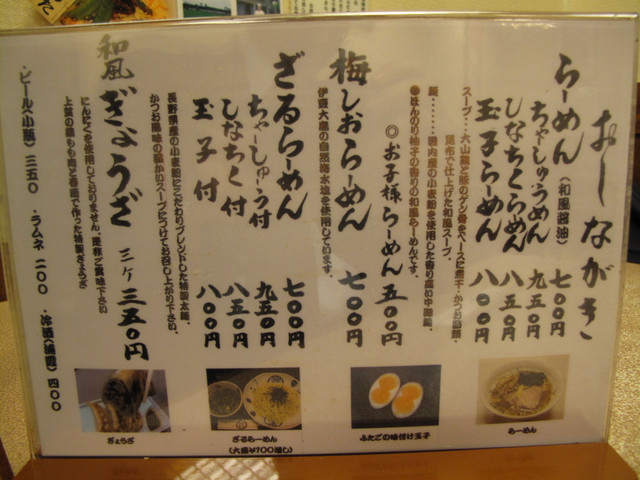 おしながき
らーめん(和風醤油) 七〇〇円
ちゃしゅうめん 九五〇円
しなちくらぁめん 八五〇円
玉子らーめん 八〇〇円
スープ‥大山鶏と豚のゲンコツ骨をベースに煮干・かつお節類・
昆布で仕上げた和風スープ。
麺‥‥‥国内産の小麦粉を使用した香り高い中細麺。
●ほんのり柚子の香りの和風らーめんです。
◎お子様らーめん 五〇〇円
梅しおらーめん 七〇〇円
伊豆大島の自然海水塩を使用しています。
ざるらーめん 七〇〇円
ちゃーしゅう付 九五〇円
しなちく付 八五〇円
玉子付 八〇〇円
長野県産の小麦粉にこだわりブレンドした特製太麺。
かつお風味の温かいスープにつけてお召し上がり下さい。
和風ぎょうざ 三ケ 三五〇円
にんにくを使用しておりません。是非ご賞味下さい
上質の鶏もも肉と春雨で作った特製ぎょうざ
・ビール(小瓶) 三五〇 ・ラムネ 二〇〇 ・冷酒(浦霞) 四〇〇
らーめん
ふたごの味付け玉子
ざるらーめん
(大盛¥100増し)
ぎょうざ